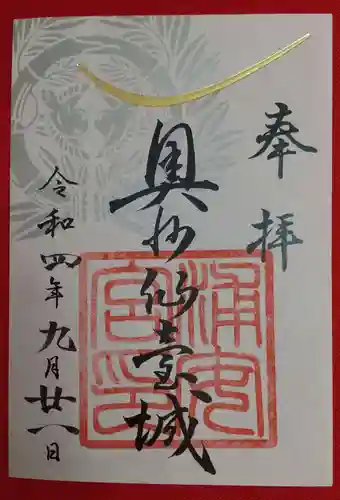 奉拝
奥州仙臺城
浦安宮印
令和四年九月廿八日